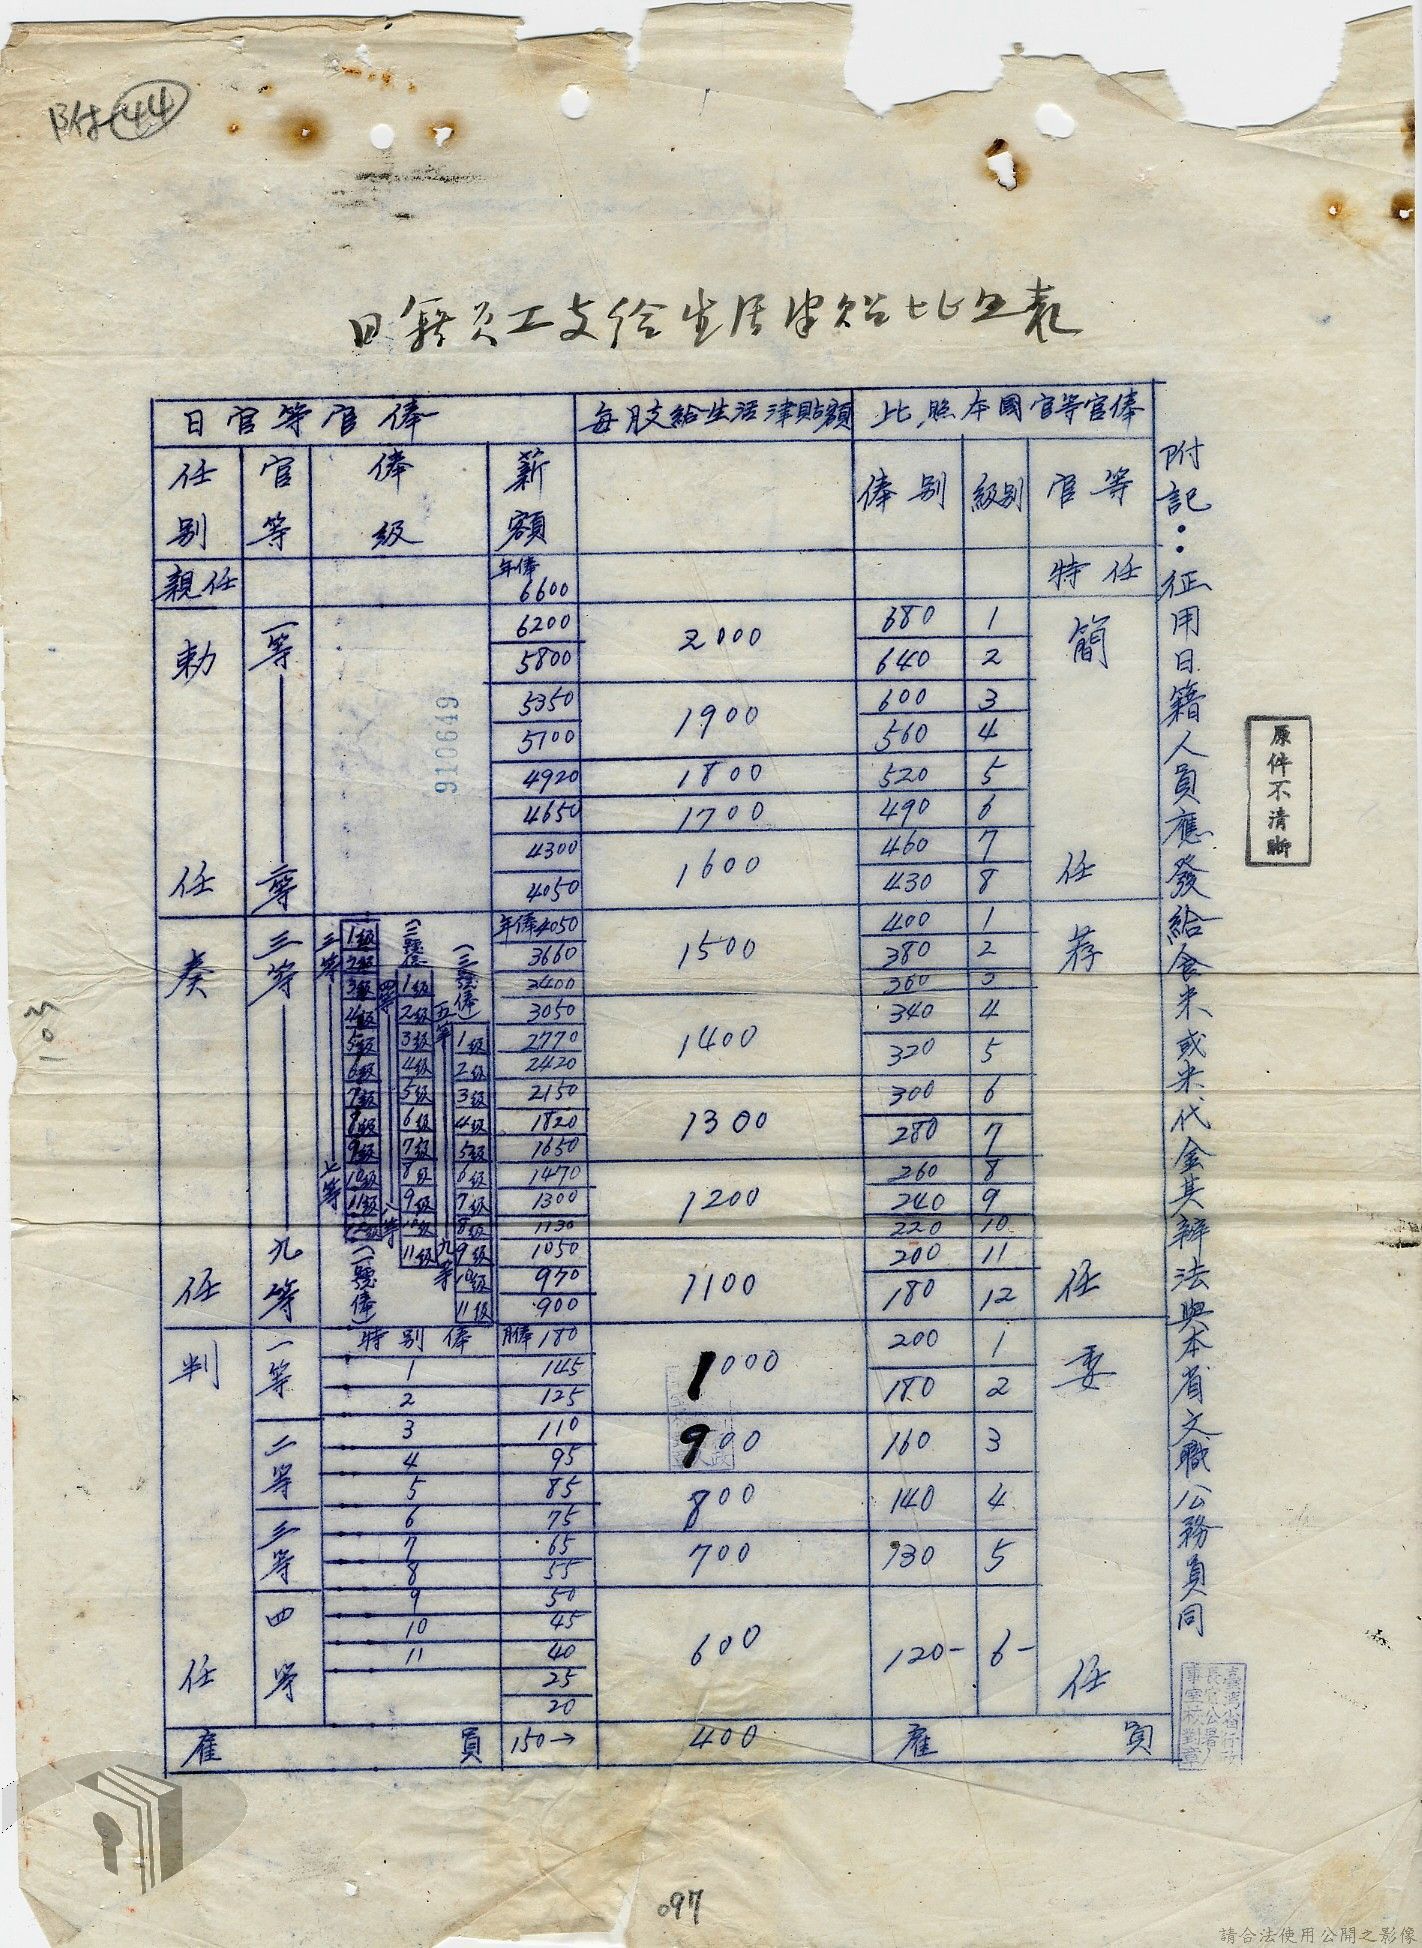 附44
日籍員工支給生活津貼比照表
日官等官俸 每月支給生活津貼額 比照本國官等官俸
任別 官等 俸級 薪額 俸別 級別 官等
親任 年俸6600 特任
勅任 一等——二等 簡任
6200 2000 680 1
5800 640 2
5350 1900 600 3
5100 560 4
4920 1800 520 5
4650 1700 490 6
4300 1600 460 7
4050 430 8
奏任 三等——九等 荐任
三等——七等 1級 2級 3級 4級 5級 6級 7級 8級 9級 10級 11級 12級 (一號俸)
(二號俸) 四等——八等 1級 2級 3級 4級 5級 6級 7級 8級 9級 10級 11級
(三號俸) 五等——九等 1級 2級 3級 4級 5級 6級 7級 8級 9級 10級 11級
年俸4050 1500 400 1
3660 380 2
3400 360 3
3050 1400 340 4
2770 320 5
2420
2150 1300 300 6
1820 280 7
1650
1470 1200 260 8
1300 240 9
1130 220 10
1050 1100 200 11
970 180 12
900
判任 委任
一等 特別俸 月俸180 1000 200 1
1 145 180 2
2 125
二等 3 110 900 160 3
4 95
5 85 800 140 4
三等 6 75
7 65 700 130 5
8 55
四等 9 50 600 120- 6-
10 45
11 40
25
20
雇員 150→ 400 雇員
附記：征用日籍人員應發給食米或米代金其辦法與本省文職公務員同
原件不清晰
910649
103
臺灣省行政
長官公署人
事室校對章
097
請合法使用公開之影像